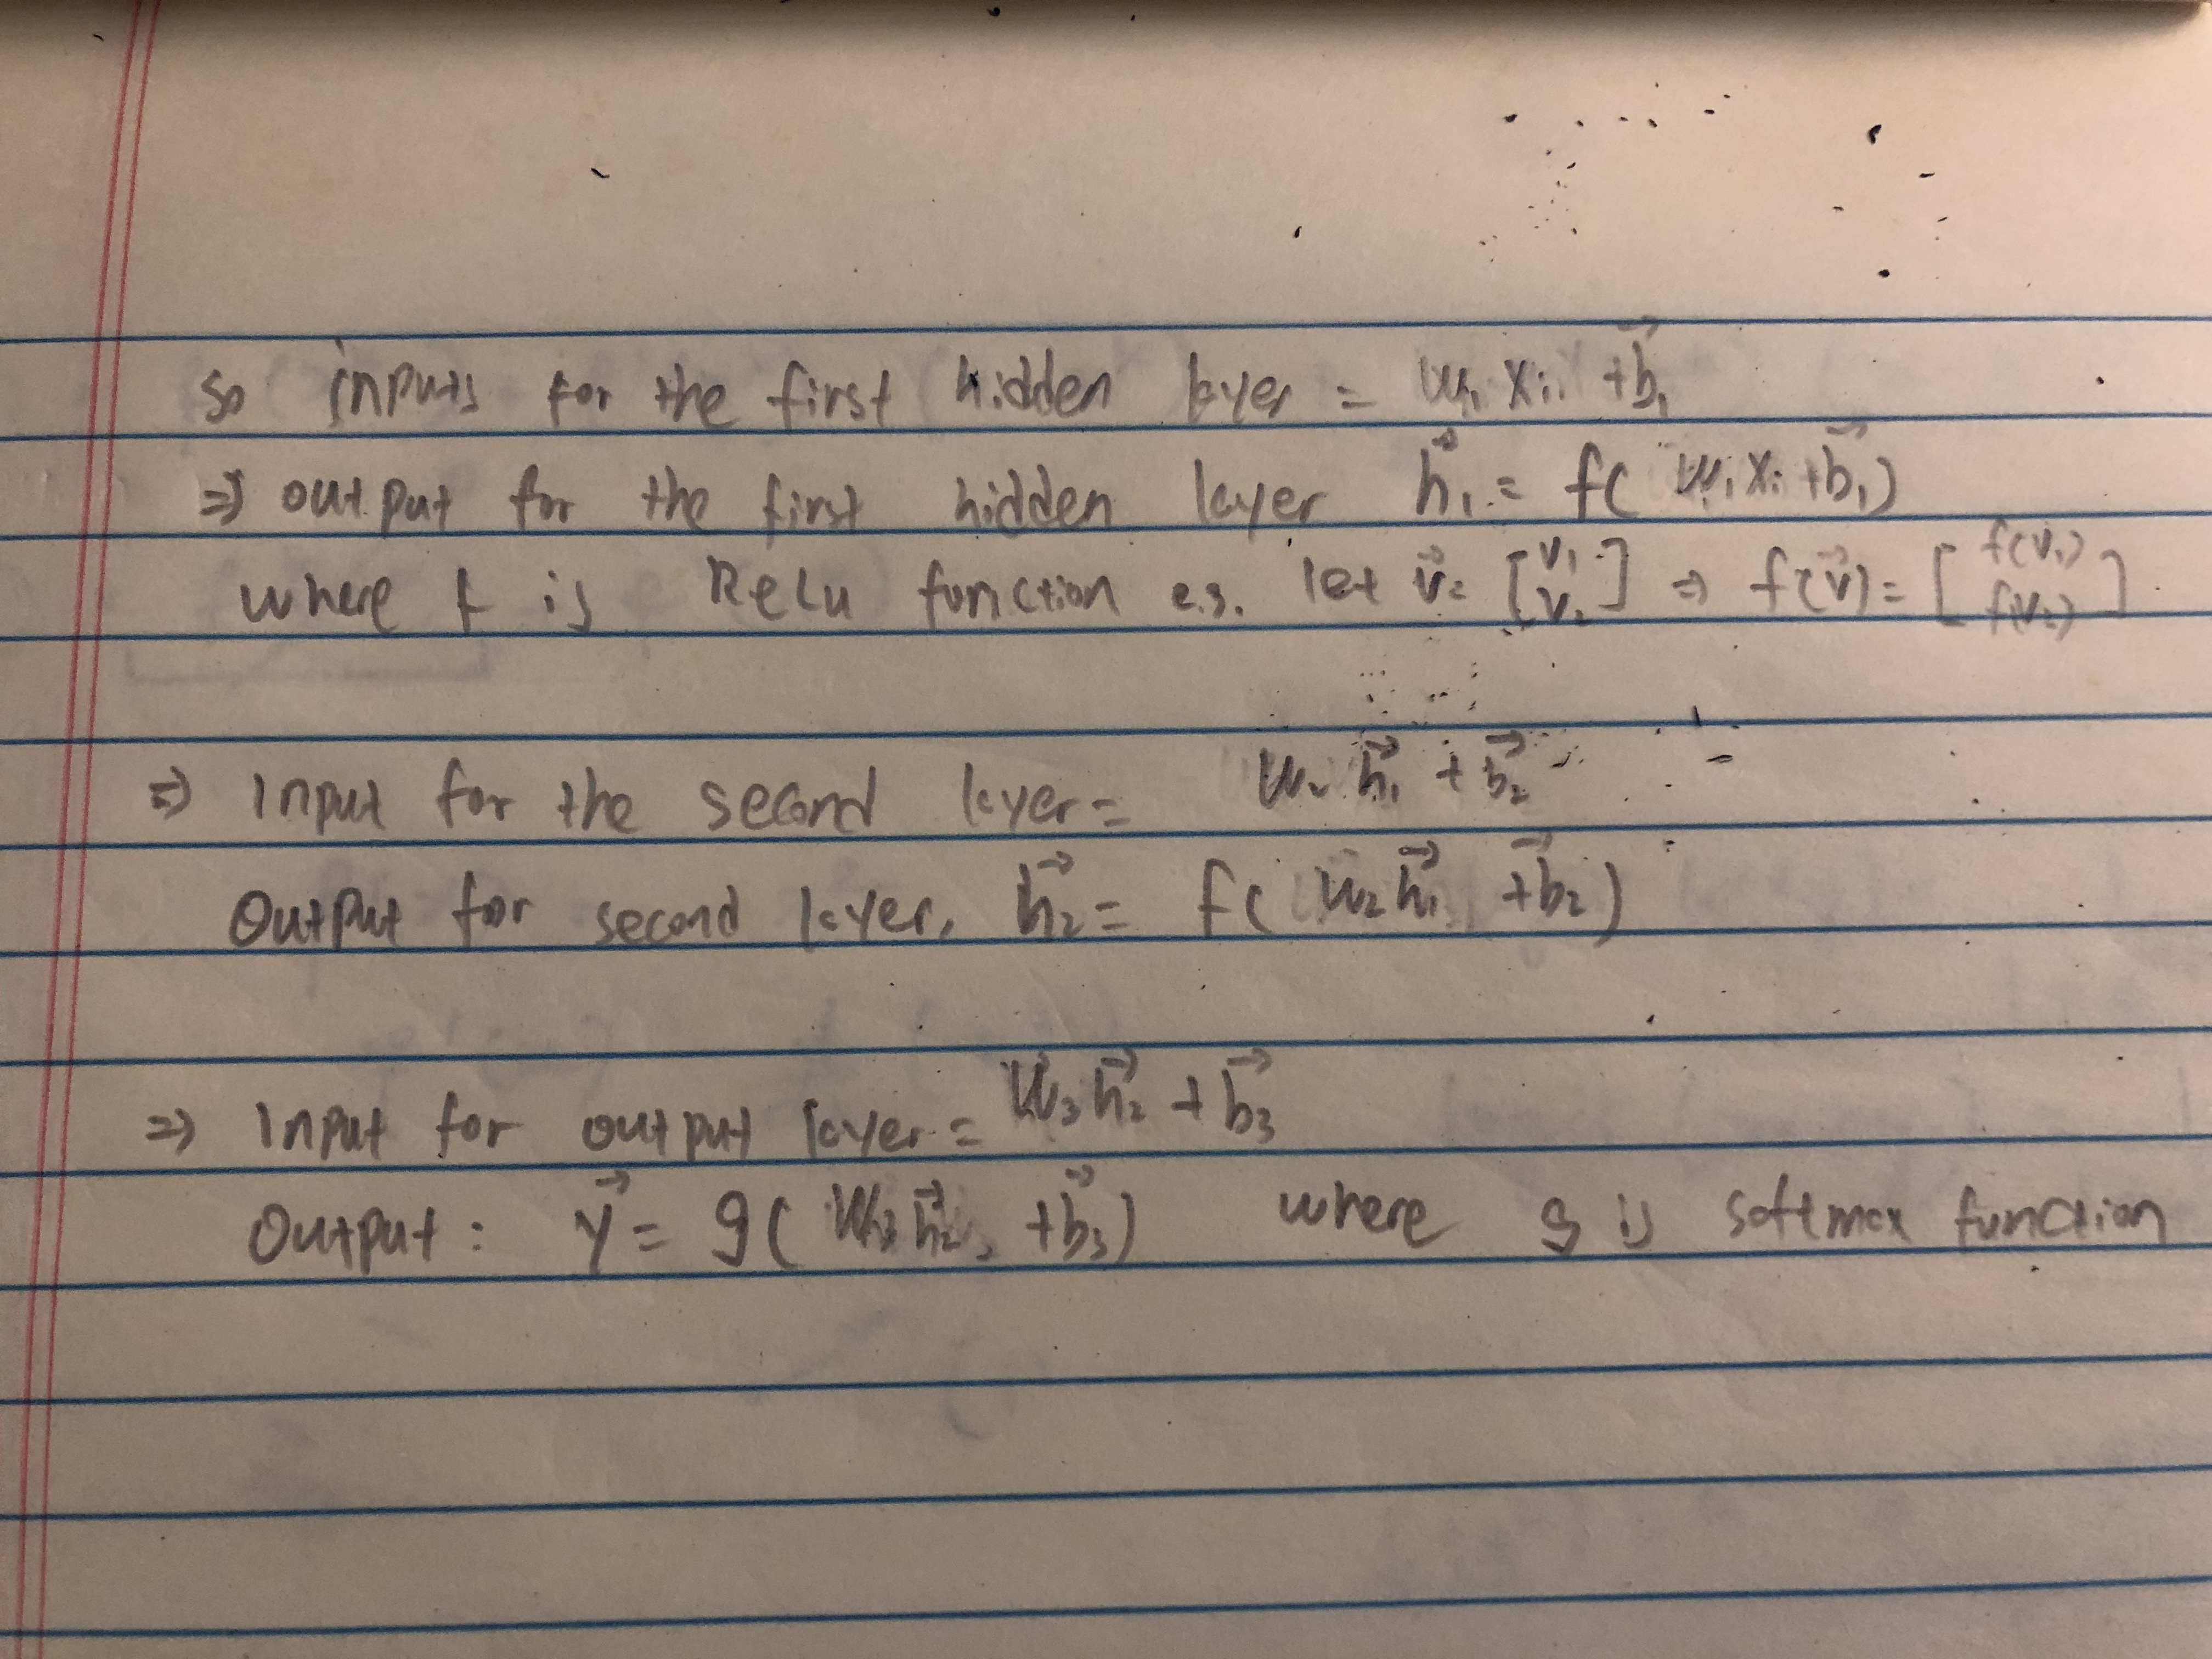 so inputs for the first hidden layer = W₁ xᵢ + b⃗₁
⇒ output for the first hidden layer h⃗₁ = f( W₁ xᵢ + b⃗₁)
where f is ReLu function e.g. let v⃗ = [v₁ v₂] ⇒ f(v⃗) = [f(v₁) f(v₂)]
⇒ input for the second layer = W₂ h⃗₁ + b⃗₂
Output for second layer, h⃗₂ = f( W₂ h⃗₁ + b⃗₂)
⇒ input for output layer = W₃ h⃗₂ + b⃗₃
Output : y⃗ = g( W₃ h⃗₂ + b⃗₃) where g is softmax function